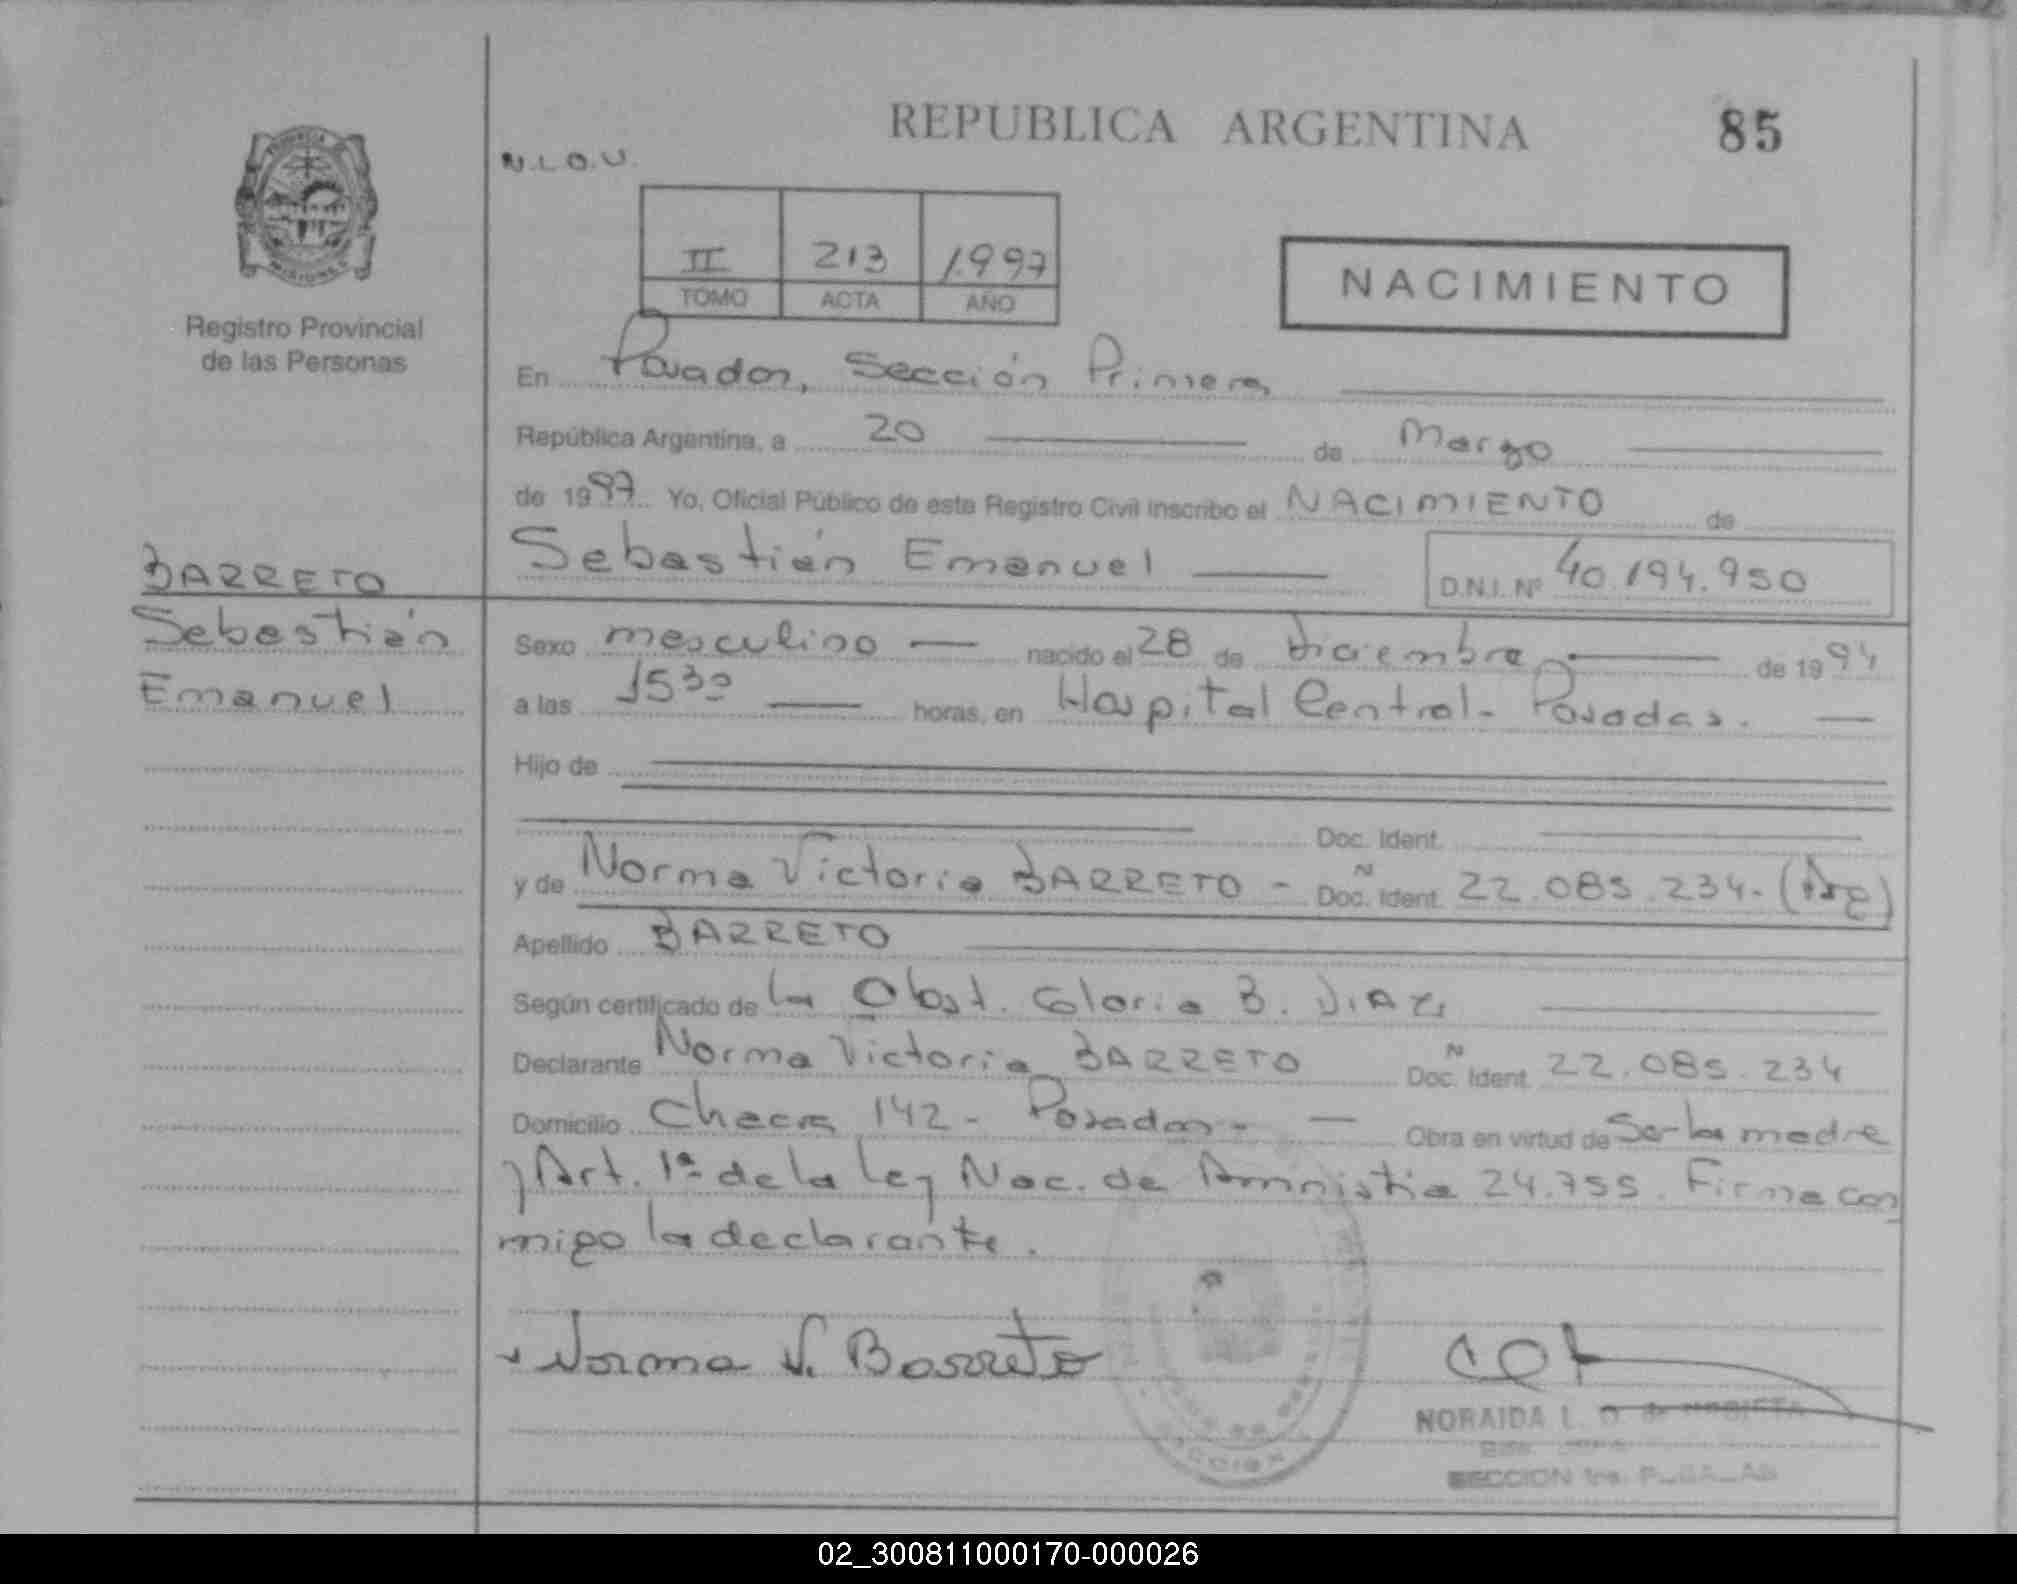 REPUBLICA ARGENTINA
85
N.L.O.U.
PROVINCIA
MISIONES
II 213 1.997
TOMO ACTA AÑO
NACIMIENTO
Registro Provincial
de las Personas
En Posadas, Sección Primera
República Argentina, a 20 de Marzo
de 1997 Yo, Oficial Público de este Registro Civil inscribo el NACIMIENTO de
Sebastián Emanuel D.N.I. Nº 40.194.950
BARRETO
Sebastián
Emanuel
Sexo masculino nacido el 28 de Diciembre de 1994
a las 15 30 horas, en Hospital Central - Posadas.
Hijo de
Doc. Ident.
y de Norma Victoria BARRETO - Doc. Ident. N 22.085.234. (Arg)
Apellido BARRETO
Según certificado de la Obst. Gloria B. DIAZ
Declarante Norma Victoria BARRETO Doc. Ident. N 22.085.234
Domicilio Checa 142 - Posadas - Obra en virtud de Ser la madre
y Art. 1º de la Ley Nac. de Amnistia 24.755. Firma con
migo la declarante.
Norma V. Barreto
NORAIDA L.
SECCION 1ra.
SECCION
02_300811000170-000026